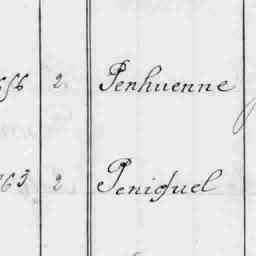 656 2 Penhuenne
263 2 Peniguel